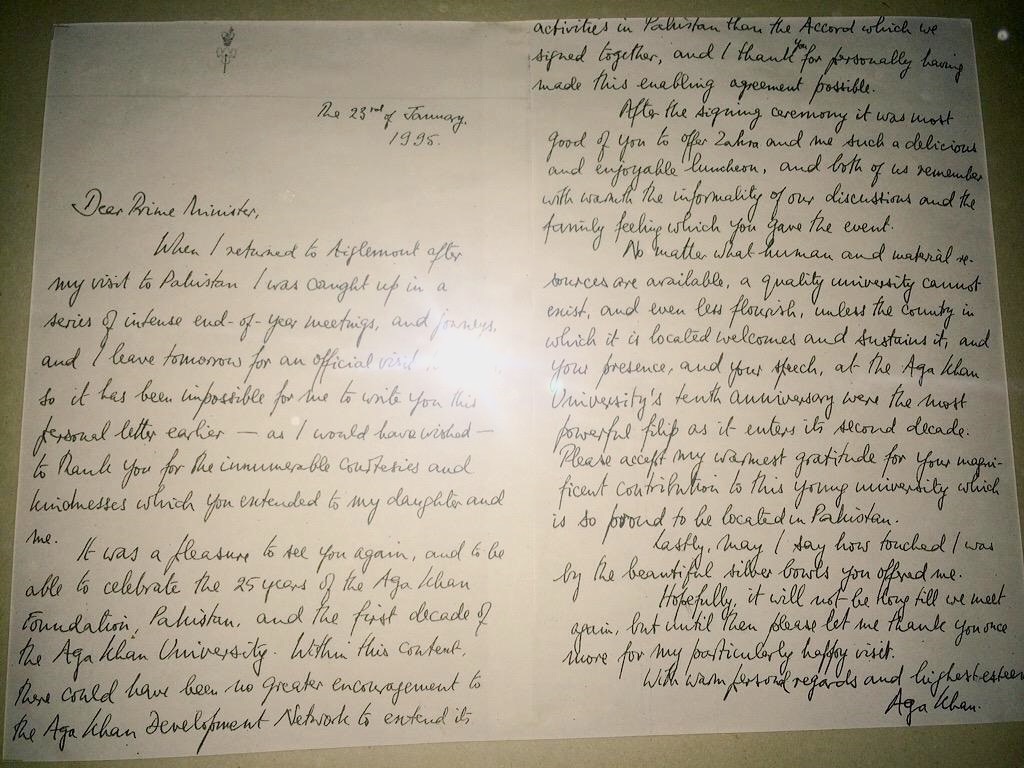 The 23rd of January.
1995.
Dear Prime Minister,
When I returned to Aiglemont after
my visit to Pakistan I was caught up in a
series of intense end-of-year meetings, and journeys,
and I leave tomorrow for an official visit
so it has been impossible for me to write you this
personal letter earlier — as I would have wished —
to thank you for the innumerable courtesies and
kindnesses which you extended to my daughter and
me.
It was a pleasure to see you again, and to be
able to celebrate the 25 years of the Aga Khan
Foundation, Pakistan, and the first decade of
the Aga Khan University. Within this context,
there could have been no greater encouragement to
the Aga Khan Development Network to extend its
activities in Pakistan than the Accord which we
signed together, and I thank you for personally having
made this enabling agreement possible.
After the signing ceremony it was most
good of you to offer Zahra and me such a delicious
and enjoyable luncheon, and both of us remember
with warmth the informality of our discussions and the
family feeling which you gave the event.
No matter what human and material re-
sources are available, a quality university cannot
exist, and even less flourish, unless the country in
which it is located welcomes and sustains it, and
your presence, and your speech, at the Aga Khan
University's tenth anniversary were the most
powerful filip as it enters its second decade.
Please accept my warmest gratitude for your magni-
ficent contribution to this young university which
is so proud to be located in Pakistan.
Lastly, may I say how touched I was
by the beautiful silver bowls you offered me.
Hopefully, it will not be long till we meet
again, but until then please let me thank you once
more for my particularly happy visit.
With warm personal regards and highest esteem
Aga Khan.